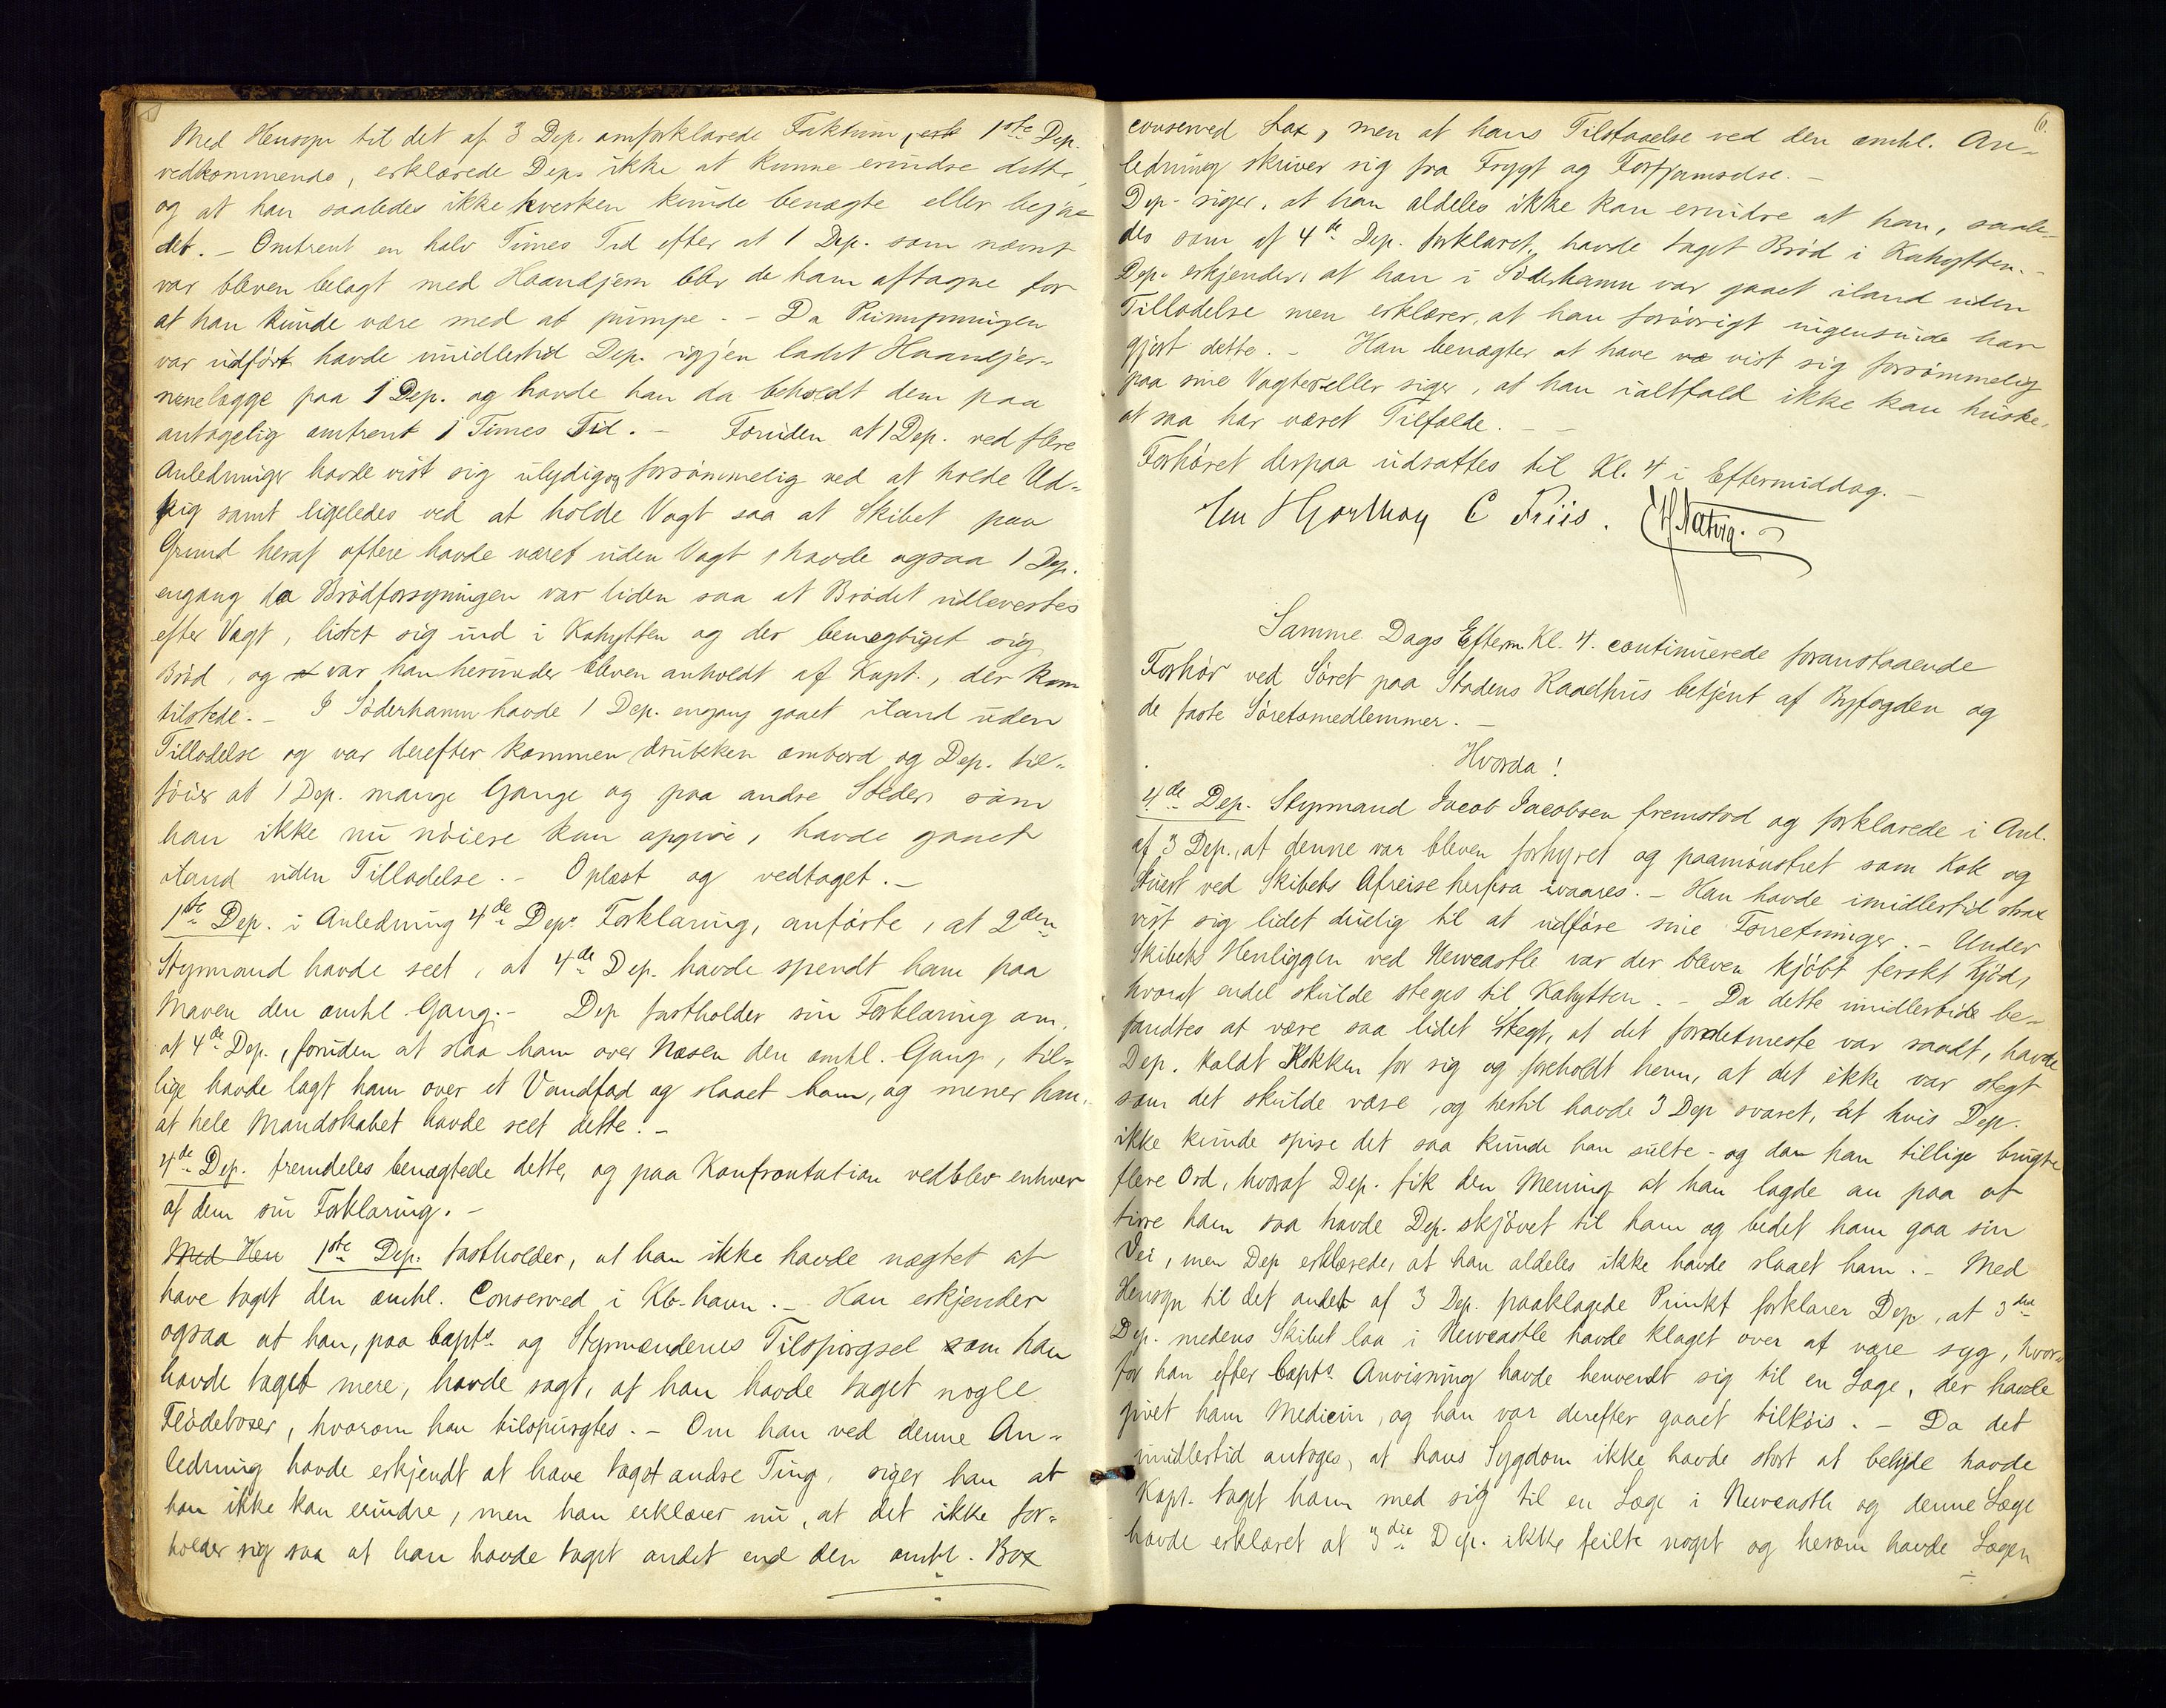 Med Hensyn til det af 3 Dep. omforklarede Faktum, 1ste Dep.
vedkommende, erklærede Dep. ikke at kunne erindre dette,
og at han saaledes ikke hverken kunde benægte eller bejae
det. - Omtrent en halv Times Tid efter at 1 Dep. som nævnt
var bleven belagt med Haandjern blev de ham aftagne for
at han kunde være med at pumpe. - Da Pumpningen
var udført havde imidlertid Dep. igjen ladet Haandjer-
nene lægge paa 1 Dep. og havde han da beholdt dem paa
antagelig omtrent 1 Times Tid. - Foruden at 1 Dep. ved flere
Anledninger havde vist sig ulydig og forsømmelig ved at holde Ud-
kig samt ligeledes ved at holde Vagt saa at Skibet paa
Grund heraf oftere havde været uden Vagt, havde ogsaa 1 Dep.
engang da Brødforsyningen var liden saa at Brødet udleveredes
efter Vægt, listet sig ind i Kahytten og der bemægtiget sig
Brød, og var han herunder bleven anholdt af Kapt., der kom
tilstede. - I Söderhamn havde 1 Dep. engang gaaet iland uden
Tilladelse og var derefter kommen drukken ombord og Dep. til-
føier at 1 Dep. mange Gange og paa andre Steder, som
han ikke nu nøiere kan opgive, havde gaaet
iland uden Tilladelse. - Oplæst og vedtaget. -
1ste Dep. i Anledning 4de Deps Forklaring, anførte, at 2den
Styrmand havde seet, at 4de Dep. havde spendt ham paa
Maven den omhl. Gang. - Dep fastholder sin Forklaring om,
at 4de Dep., foruden at slaa ham over Næsen den omhl. Gang, til-
lige havde lagt ham over et Vandfad og slaaet ham, og mener han,
at hele Mandskabet havde seet dette. -
4de Dep. fremdeles benægtede dette, og paa Konfrontation vedblev enhver
af dem sin Forklaring. -
Med Hen 1ste Dep. fastholder, at han ikke havde nægtet at
have taget den omhl. Conserved i Kb-havn. - Han erkjender
ogsaa at han, paa Capts og Styrmændenes Tilspørgsel om han
havde taget mere, havde sagt, at han havde taget nogle
Flødeboxer, hvorom han tilspurgtes. - Om han ved denne An-
ledning havde erkjendt at have taget andre Ting, siger han at
han ikke kan erindre, men han erklærer nu, at det ikke for-
holder sig saa at han havde taget andet end den omhl. Box
6.
conserved Lax, men at hans Tilstaaelse ved den omhl. An-
ledning skriver sig fra Frygt og Forfjamselse. -
Dep. siger, at han aldeles ikke kan erindre at han, saale-
des som af 4de Dep. forklaret, havde taget Brød i Kahytten. -
Dep. erkjender, at han i Söderhamn var gaaet iland uden
Tilladelse men erklærer, at han forøvrigt ingensinde har
gjort dette. - Han benægter at have vist sig forsømmelig
paa sine Vagter eller siger, at han ialtfald ikke kan huske,
at saa har været Tilfælde. - -
Forhøret derpaa udsattes til Kl. 4 i Eftermiddag. -
Em Hjorthøy C Friis.
Samme Dags Efterm. Kl. 4. continuerede foranstaaende
Forhør ved Søret paa Stadens Raadhus betjent af Byfogden og
de faste Søretsmedlemmer. -
Hvorda!
4de Dep. Styrmand Jacob Jacobsen fremstod og forklarede i Anl.
af 3 Dep., at denne var bleven forhyret og paamønstret som Kok og
Stuert ved Skibets Afreise herfra ivaares. - Han havde imidlertid strax
vist sig lidet duelig til at udføre sine Forretninger. - Under
Skibets Henliggen ved Newcastle var der bleven kjøbt ferskt Kjød,
hvoraf endel skulde steges til Kahytten. - Da dette imidlertid be-
fandtes at være saa lidet stegt, at det fordetmeste var raadt, havde
Dep. kaldt Kokken for sig og foreholdt ham, at det ikke var stegt
som det skulde være og hertil havde 3 Dep svaret, at hvis Dep.
ikke kunde spise det saa kunde han sulte - og da han tillige brugte
flere Ord, hvoraf Dep. fik den Mening at han lagde an paa at
tirre ham saa havde Dep. skjøvet til ham og bedet ham gaa sin
Vei, men Dep erklærede, at han aldeles ikke havde slaaet ham. - Med
Hensyn til det andet af 3 Dep. paaklagede Punkt forklarer Dep, at 3die
Dep. medens Skibet laa i Newcastle havde klaget over at være syg, hvor-
for han efter Capts Anvisning havde henvendt sig til en Læge, der havde
givet ham Medicin, og han var derefter gaaet tilkøis. - Da det
imidlertid antoges, at hans Sygdom ikke havde stort at betyde havde
Kapt. taget ham med sig til en Læge i Newcastle og denne Læge
havde erklæret at 3die Dep. ikke feilte noget og herom havde Lægen